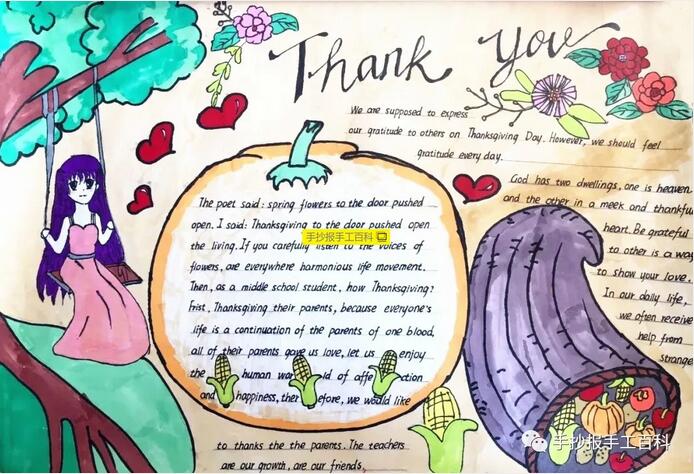 Thank You
We are supposed to express
our gratitude to others on Thanksgiving Day. However, we should feel
gratitude every day.
God has two dwellings, one is heaven.
and the other in a meek and thankful
heart. Be grateful
to other is a way
to show your love.
In our daily life,
we often receive
help from
strange
The poet said: spring flowers to the door pushed
open. I said: Thanksgiving to the door pushed open
the living. If you carefully listen to the voices of
flowers, are everywhere harmonious life movement.
Then, as a middle school student, how Thanksgiving?
Frist, Thanksgiving their parents, because everyone's
life is a continuation of the parents of one blood,
all of their parents gave us love, let us enjoy
the human war ld of affe ction
and happiness, ther efore, we would like
to thanks the the parents. The teachers
are our growth, are our friends,
手抄报手工百科
手抄报手工百科